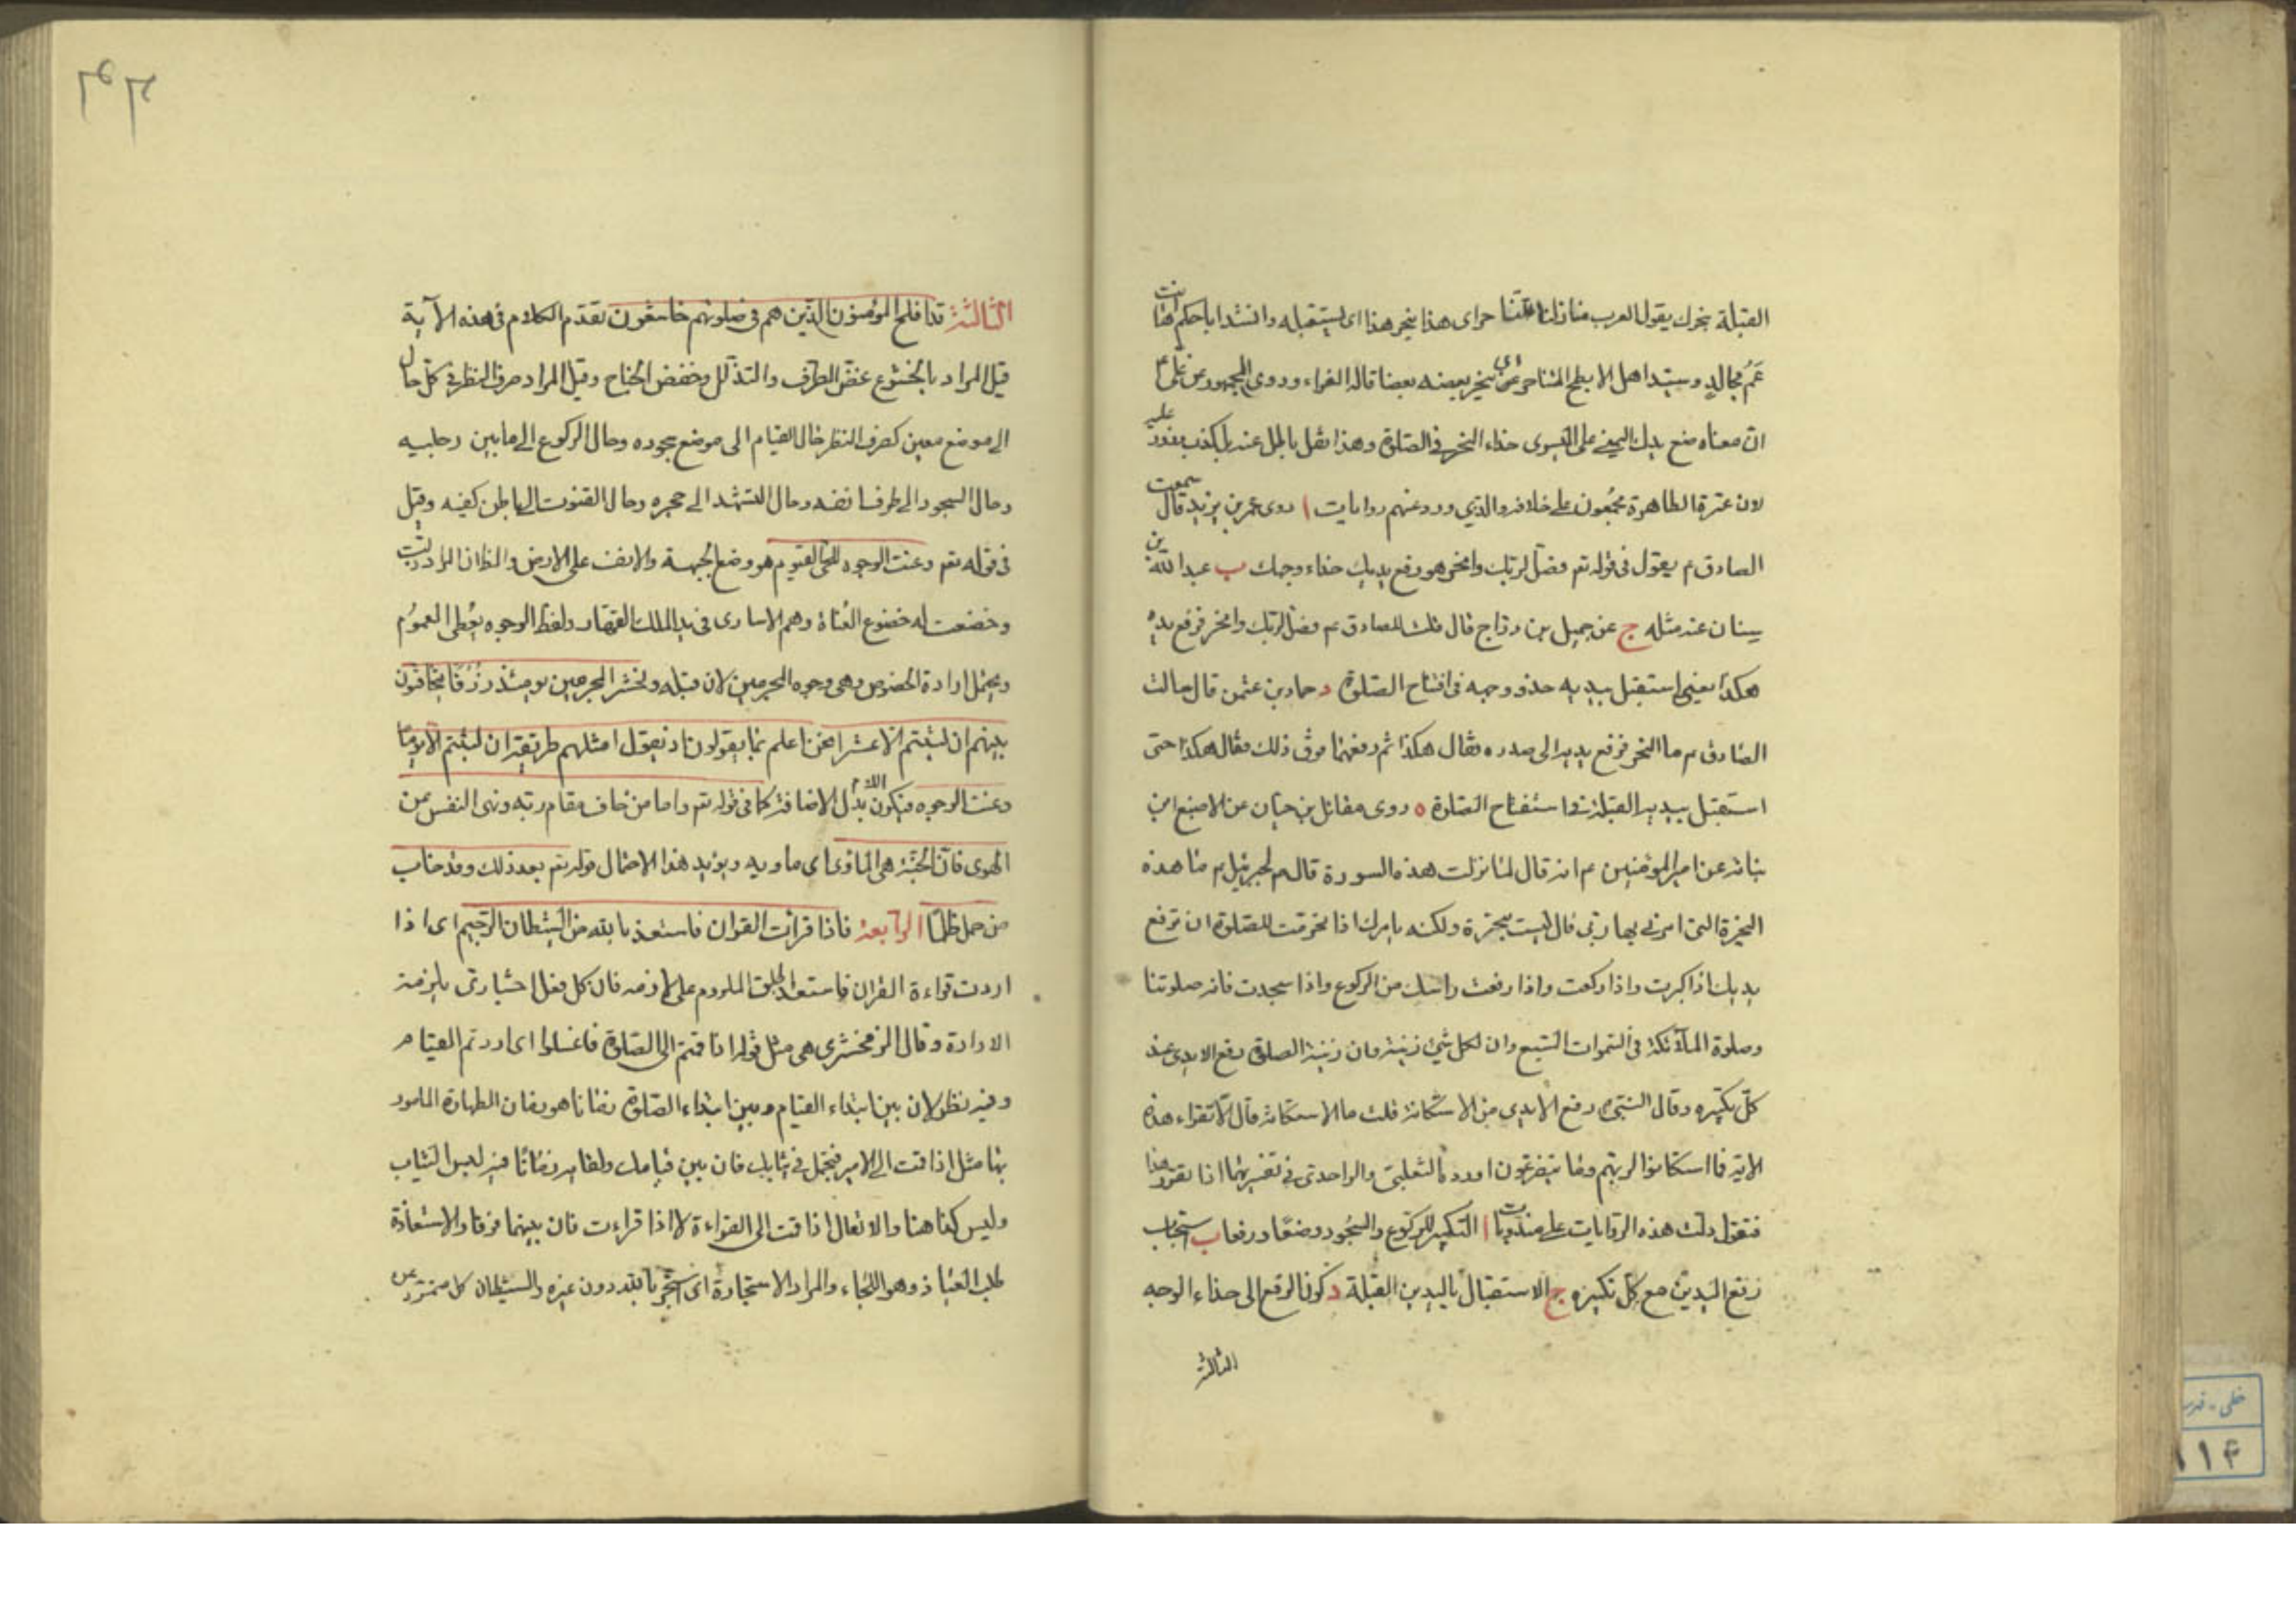 القبلة بنحرك يقول العرب منازلنا تتناحر اى هذا ينحر هذا اى يستقبله وانشد اباحكم هل انت
عم مجالد وسيد اهل الابطح المتناحر اى ينحر بعضه بعضا قاله الفراء وروى الجمهور عن على ع
ان معناه ضع يدك اليمنى على اليسرى حذاء النحر فى الصلوة وهذا نقل باطل عنه بل كذب عليه
لان عترة الطاهرة مجمعون على خلافه والذي ورد عنهم روايات ا روى عمر بن يزيد قال سمعت
الصادق م يقول فى قوله تعم فصل لربك وانحر هو رفع يديك حذاء وجهك ب عبد الله بن
سنان عنه مثله ج عن جميل بن دراج قال قلت للصادق عم فصل لربك وانحر فرفع يديه
هكذا يعنى استقبل بيديه حذو وجهه فى افتتاح الصلوة د حماد بن عثمن قال سالت
الصادق م ما النحر فرفع يديه الى صدره فقال هكذا ثم رفعهما فوق ذلك فقال هكذا حتى
استقبل بيديه القبلة فى استفتاح الصلوة ه روى مقاتل بن حيان عن الاصبغ ابن
نباته عن امير المؤمنين عم انه قال لما نزلت هذه السورة قال لجبرئيل م ما هذه
النحيرة التى امرنى بها ربى قال ليست بنحيرة ولكنه يامرك اذا تحرمت للصلوة ان ترفع
يديك اذا كبرت واذا ركعت واذا رفعت راسك من الركوع واذا سجدت فانه صلوتنا
وصلوة الملآئكة فى السموات السبع وان لكل شئ زينة وان زينة الصلوة رفع الايدى عند
كل تكبيره وقال النبى ص رفع الايدى من الاستكانة قلت ما الاستكانة قال الا تقراء هذه
الاية فما استكانوا لربهم وما يتضرعون اورده الثعلبى والواحدى فى تفسيريهما اذا تقرر هذا
فنقول دلت هذه الروايات على مندوبات ا التكبير للركوع والسجود وضعا ورفعا ب استحباب
رفع اليدين مع كل تكبيره ج الاستقبال باليدين القبلة د كون الرفع الى حذاء الوجه
الثالثة
الثالثة قد افلح المؤمنون الذين هم فى صلوتهم خاشعون تقدم الكلام فى هذه الآية
قيل المراد بالخشوع غض الطرف والتذلل وخفض الجناح وقيل المراد صرف النظر فى كل حال
الى موضع معين كصرف النظر حال القيام الى موضع سجوده وحال الركوع الى ما بين رجليه
وحال السجود الى طرف انفه وحال التشهد الى حجره وحال القنوت الى باطن كفيه وقيل
فى قوله تعم وعنت الوجوه للحى القيوم هو وضع الجبهة والانف على الارض والظ ان المراد ذلت
وخضعت له خضوع العناة وهم الاسارى فى يد الملك القهار ولفظ الوجوه يعطى العموم
ويحتمل ارادة الخصوص وهى وجوه المجرمين لان قبله ونحشر المجرمين يومئذ زرقا يتخافتون
بينهم ان لبثتم الا عشرا نحن اعلم بما يقولون اذ يقول امثلهم طريقة ان لبثتم الا يوما
وعنت الوجوه فيكون اللام بدل الاضافة كما فى قوله تعم واما من خاف مقام ربه ونهى النفس عن
الهوى فان الجنة هى الماوى اى ماويه ويؤيد هذا الاحتمال قوله تعم بعد ذلك وقد خاب
من حمل ظلما الرابعة فاذا قرأت القرآن فاستعذ بالله من الشيطان الرجيم اى اذا
اردت قراءة القران فاستعذ اطلق الملزوم على لازمه فان كل فعل اختيارى يلزمه
الارادة وقال الزمخشرى هى مثل قوله اذا قمتم الى الصلوة فاغسلوا اى اردتم القيام
وفيه نظر لان بين ابتداء القيام وبين ابتداء الصلوة زمانا هو زمان الطهارة المامور
بها مثل اذا قمت الى الامير فتجمل فى ثيابك فان بين قيامك ولقايه زمانا فيه لبس الثياب
وليس كذا هنا والا لقال اذا قمت الى القراءة لا اذا قراءت فان بينهما فرقا والاستعاذة
طلب العياذ وهو اللجاء والمراد الاستجارة اى استجر بالله دون غيره والشيطان كل متمرد من